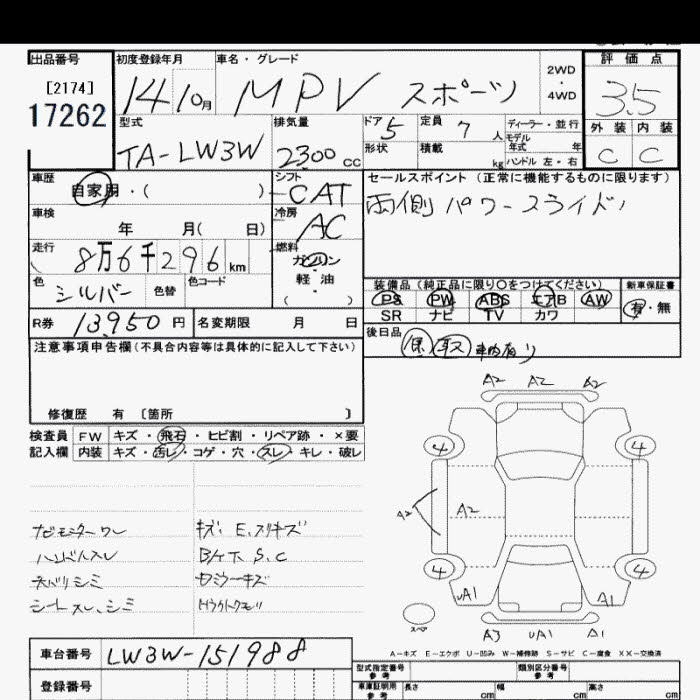 出品番号
[2174]
17262
初度登録年月
14 10月
車名・グレード
MPV スポーツ
2WD
・
4WD
評価点
3.5
外装 内装
C C
型式
TA-LW3W
排気量
2300 CC
ドア 5
形状
定員 7 人
積載 kg
ディーラー・並行
モデル
年式 年
ハンドル 左・右
車歴
自家用・( )
シフト
CAT
セールスポイント (正常に機能するものに限ります)
両側パワースライド
車検
年 月( 日)
冷房
AC
走行
8万6千296 km
燃料
ガソリン
軽油
( )
色
シルバー
色替
色コード
装備品 (純正品に限り〇をつけてください)
PS PW ABS エアB AW
SR ナビ TV カワ
新車保証書
有・無
R券 13,950 円
名変期限 月 日
後日品
車内有り
注意事項申告欄 (不具合内容等は具体的に記入して下さい)
修復歴 有 [箇所 ]
検査員
記入欄
FW キズ・飛石・ヒビ割・リペア跡・×要
内装 キズ・汚レ・コゲ・穴・スレ・キレ・破レ
キズ、E、スリキズ
ハンドルスレ
B/ドア S、C
天バリシミ
シートスレ、シミ
A2 A2 A2
4 4
A2
A2
4 4
UA1 A1
スペア
A3 UA1 A1
A-キズ E-エクボ U-凹み W-補修跡 S-サビ C-腐食 XX-交換済
車台番号 LW3W-151988
登録番号
型式指定番号
参考
類別区分番号
参考
車庫証明用
参考
長さ cm
幅 cm
高さ cm